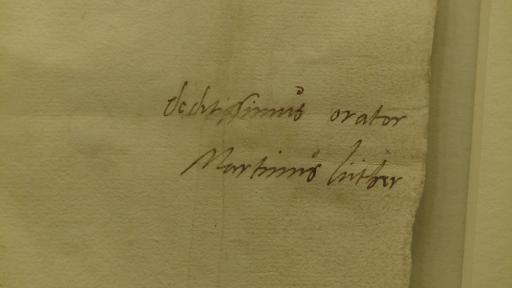 deditissimus orator
Martinus luther